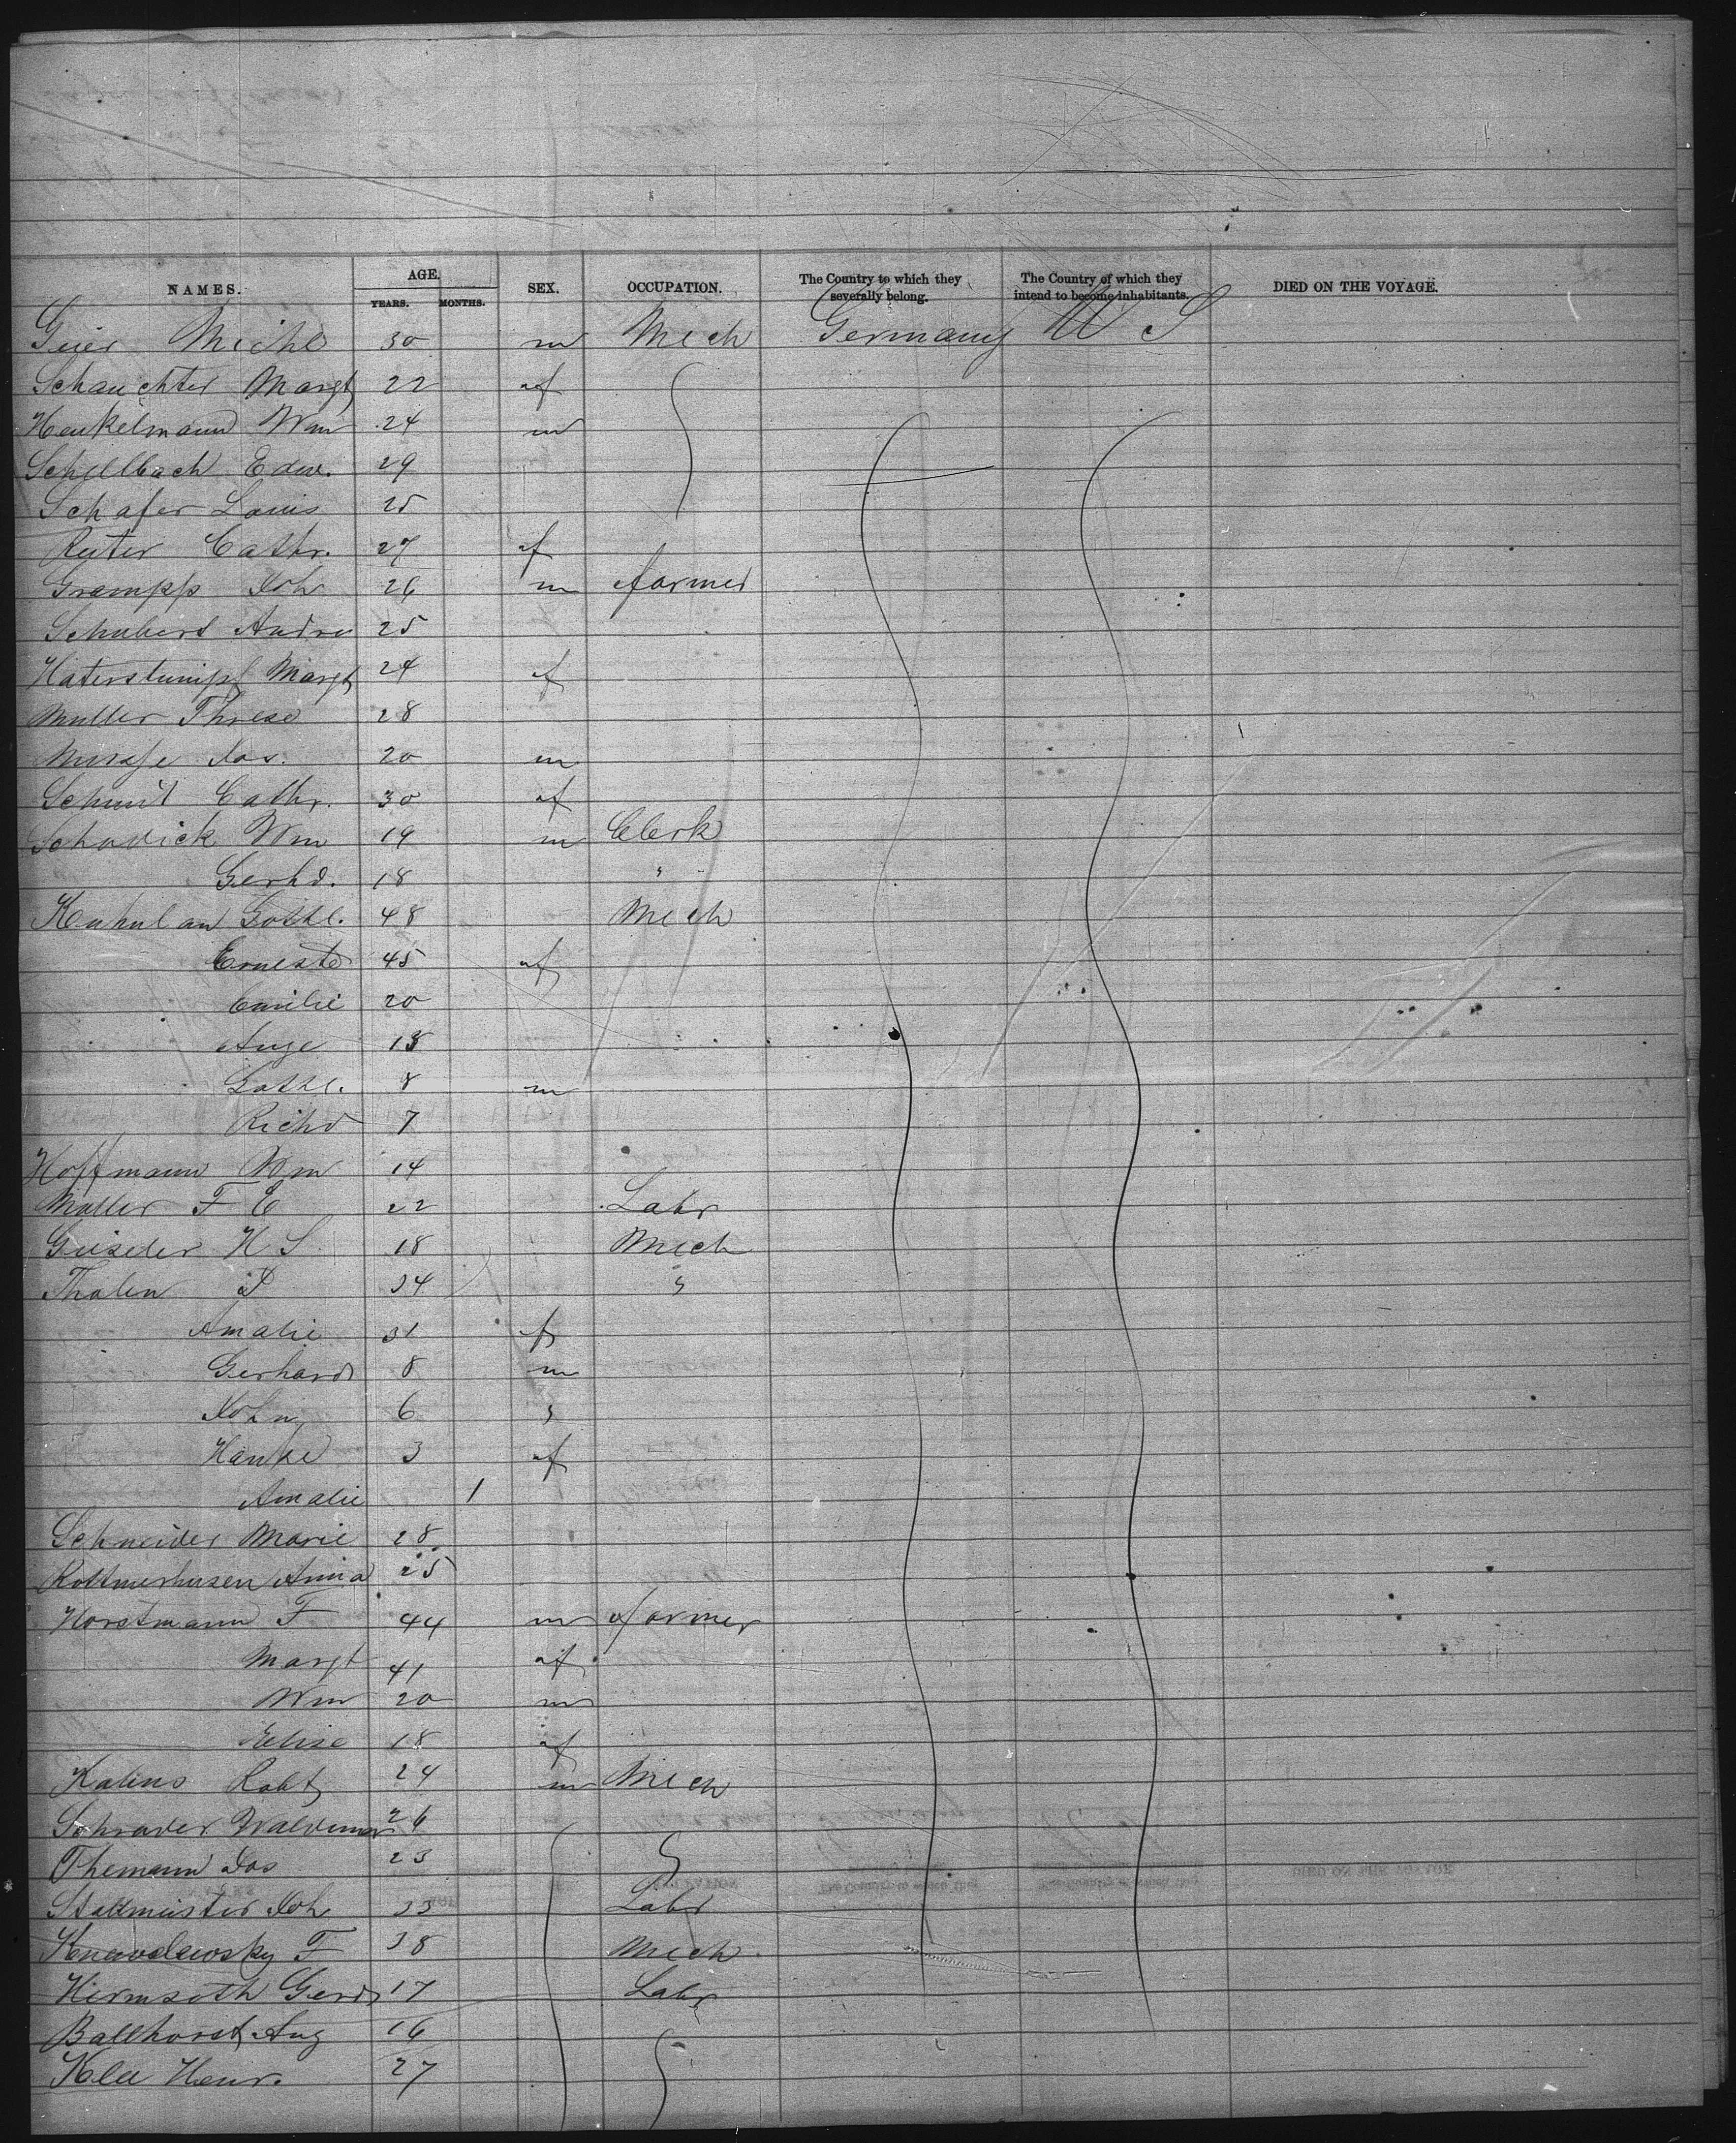 NAMES. AGE. YEARS. MONTHS. SEX. OCCUPATION. The Country to which they severally belong. The Country of which they intend to become inhabitants. DIED ON THE VOYAGE.
Geier Michl 30 m Mech Germany U S
Schauchter Margt 22 f
Henkelmann Wm 24 m
Schellbach Edw. 29
Schafer Louis 25
Reiter Cathr. 27 f
Grampp Joh 26 m farmer
Schubert Andre 25
Haterstumpf Margt 24 f
Muller Threse 28
Jos. 20 m
Schmit Cathr. 30 f
Schovick Wm 19 m Clerk
Gerhd. 18 "
Gothl. 48 Mech
Ernest 45 f
Emilie 20
Auge 13
Gothl. 8 m
Richd 7
Hoffmann Wm 14
Moller F E 22 Labr
Geiseler H S 18 Mech
Tholen P 34 "
Amalie 31 f
Gerhard 8 m
John 6 "
Hanke 3 f
Amalie 1
Schneider Marie 28
Rottmerhusen Anna 25
Horstmann F 44 m farmer
Margt 41 f
Wm 20 m
Elise 18 f
Kalins Robt 24 m Mech
Schrader Waldemar 26
Themann Jos 23
Stallmeister Joh 33 Labr
F 38 Mech
Hirmsoth Gerd 17 Labr
Ballhorst Aug 16
Klee Heinr. 27